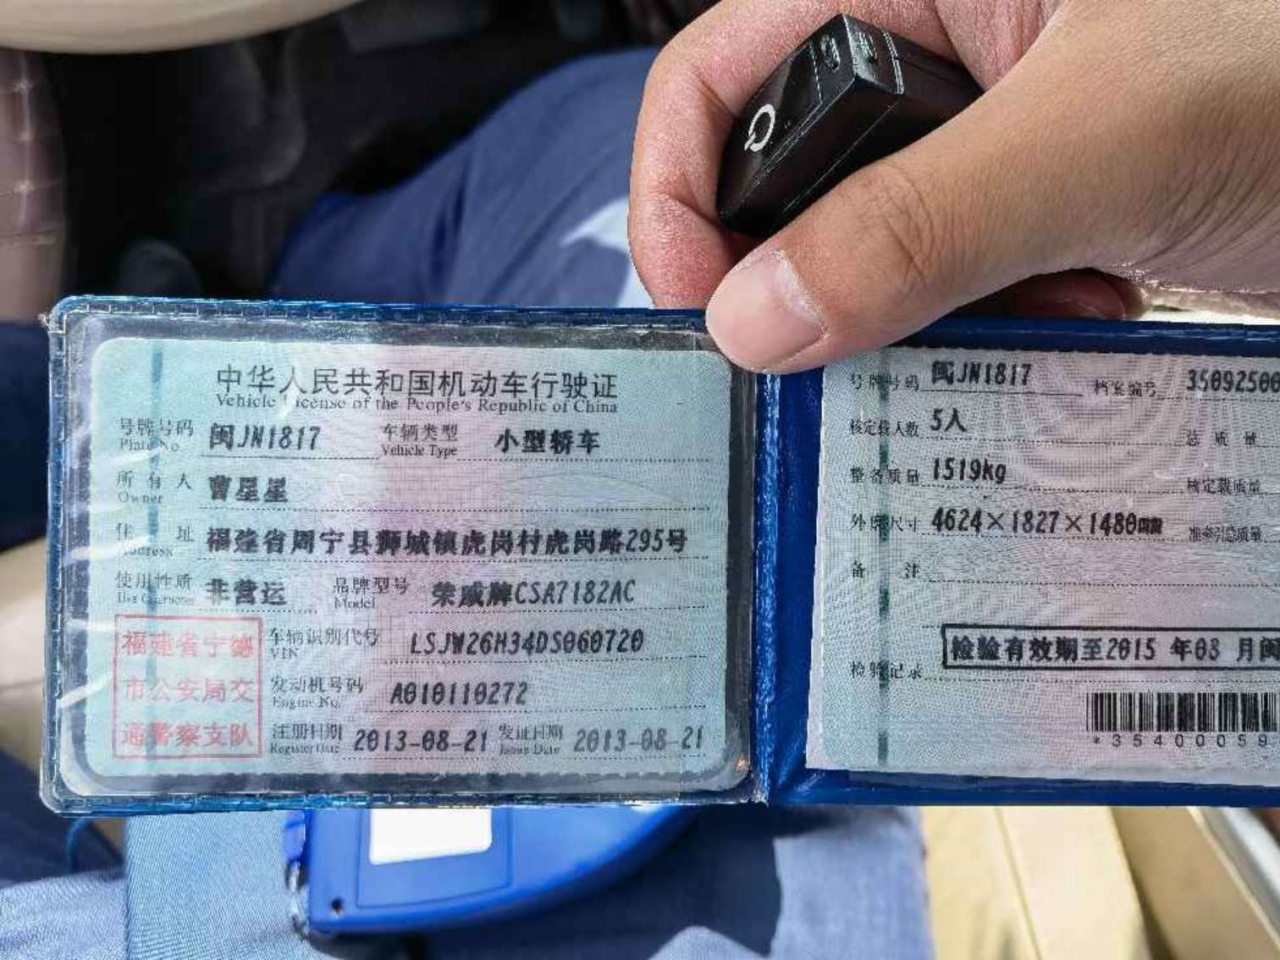 中华人民共和国机动车行驶证
Vehicle License of the People's Republic of China
号牌号码 闽JN1817 车辆类型 小型轿车
Plate No. Vehicle Type
所有人 曹星星
Owner
住址 福建省周宁县狮城镇虎岗村虎岗路295号
Address
使用性质 非营运 品牌型号 荣威牌CSA7182AC
Use Character Model
福建省宁德
市公安局交
通警察支队
车辆识别代号 LSJW26H34DS060720
VIN
发动机号码 A010110272
Engine No.
注册日期 2013-08-21 发证日期 2013-08-21
Register Date Issue Date
号牌号码 闽JN1817 档案编号 35092500
核定载人数 5人 总质量
整备质量 1519kg 核定载质量
外廓尺寸 4624×1827×1480mm 准牵引总质量
备注
检验记录 检验有效期至2015 年08 月闽
*35400059